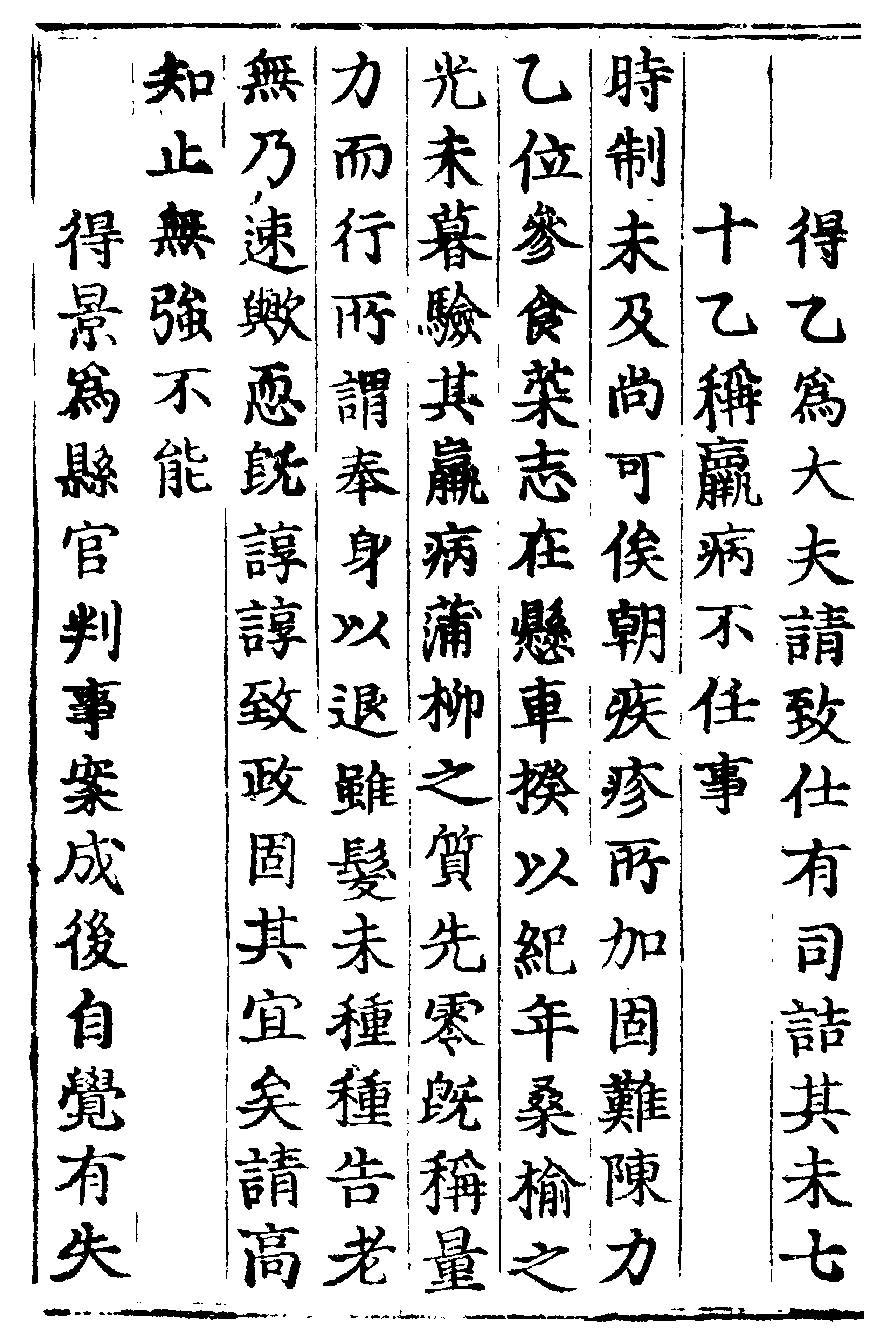 得乙爲大夫請致仕有司詰其未七
十乙稱羸病不任事
時制未及尚可俟朝疾疹所加固難陳力
乙位參食菜志在懸車揆以紀年桑榆之
光未暮驗其羸病蒲柳之質先零旣稱量
力而行所謂奉身以退雖髮未種種告老
無乃速歟而旣諄諄致政固其宜矣請高
知止無強不能
得景爲縣官判事案成後自覺有失